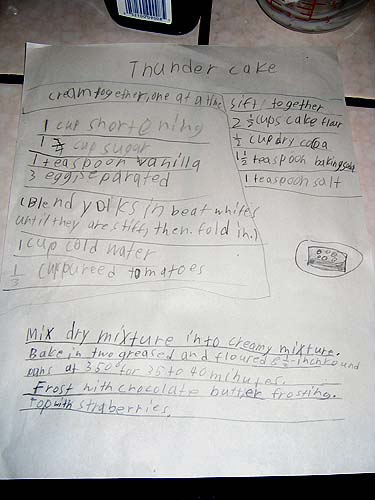 Thunder cake
cream together, one at a time
1 cup shortening
1 3/4 cup sugar
1 teaspoon vanilla
3 egg, separated
(Blend yolks in beat whites
until they are stiff, then fold in.)
1 cup cold water
1/3 cup pureed tomatoes
sift together
2 1/2 cups cake flour
1/2 cup dry cocoa
1 1/2 teaspoon baking soda
1 teaspoon salt
Mix dry mixture into creamy mixture.
Bake in two greased and floured 8 1/2-inch round
pans at 350° for 35 to 40 minutes.
Frost with chocolate butter frosting.
Top with straberries.